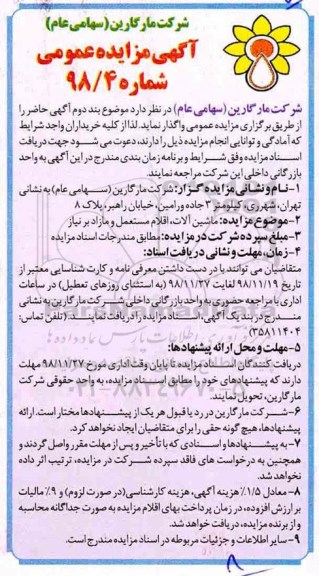 شرکت مارگارین (سهامی عام)
آگهی مزایده عمومی
شماره ۹۸/۴
شرکت مارگارین (سهامی عام) در نظر دارد موضوع بند دوم آگهی حاضر را
از طریق برگزاری مزایده عمومی واگذار نماید. لذا از کلیه خریداران واجد شرایط
که آمادگی و توانایی انجام مزایده ذیل را دارند، دعوت می شود جهت دریافت
اسناد مزایده وفق شرایط و برنامه زمان بندی مندرج در این آگهی به واحد
بازرگانی داخلی این شرکت مراجعه نمایند.
۱-نام و نشانی مزایده گزار: شرکت مارگارین (سهامی عام) به نشانی
تهران، شهرری، کیلومتر ۳ جاده ورامین، خیابان راهبر، پلاک ۸
۲-موضوع مزایده: ماشین آلات، اقلام مستعمل و مازاد بر نیاز
۳-مبلغ سپرده شرکت در مزایده: مطابق مندرجات اسناد مزایده
۴-زمان، مهلت و نشانی دریافت اسناد:
متقاضیان می توانند با در دست داشتن معرفی نامه و کارت شناسایی معتبر از
تاریخ ۹۸/۱۱/۱۹ لغایت ۹۸/۱۱/۲۷ (به استثنای روزهای تعطیل) در ساعات
اداری با مراجعه حضوری به واحد بازرگانی داخلی شرکت مارگارین به نشانی
مندرج در بند یک آگهی، اسناد مزایده را دریافت نمایند. (تلفن تماس:
۳۵۸۱۱۴۰۴)
۵-مهلت و محل ارائه پیشنهادها:
دریافت کنندگان اسناد مزایده تا پایان وقت اداری مورخ ۹۸/۱۱/۲۷ مهلت
دارند که پیشنهادهای خود را مطابق اسناد مزایده، به واحد حقوقی شرکت
مارگارین، تحویل نمایند.
۶-شرکت مارگارین در رد یا قبول هر یک از پیشنهادها مختار است. ارائه
پیشنهادها، هیچ گونه حقی را برای متقاضیان ایجاد نخواهد کرد.
۷- به پیشنهادها و اسنادی که با تأخیر و پس از مهلت مقرر واصل گردند و
همچنین به درخواست های فاقد سپرده شرکت در مزایده، ترتیب اثر داده
نخواهد شد.
۸- معادل ۱/۵٪ هزینه آگهی، هزینه کارشناسی (در صورت لزوم) و ۹٪ مالیات
بر ارزش افزوده، در زمان پرداخت بهای اقلام مزایده به صورت جداگانه محاسبه
و از برنده مزایده، دریافت خواهد شد.
۹- سایر اطلاعات و جزئیات مربوطه در اسناد مزایده مندرج است.